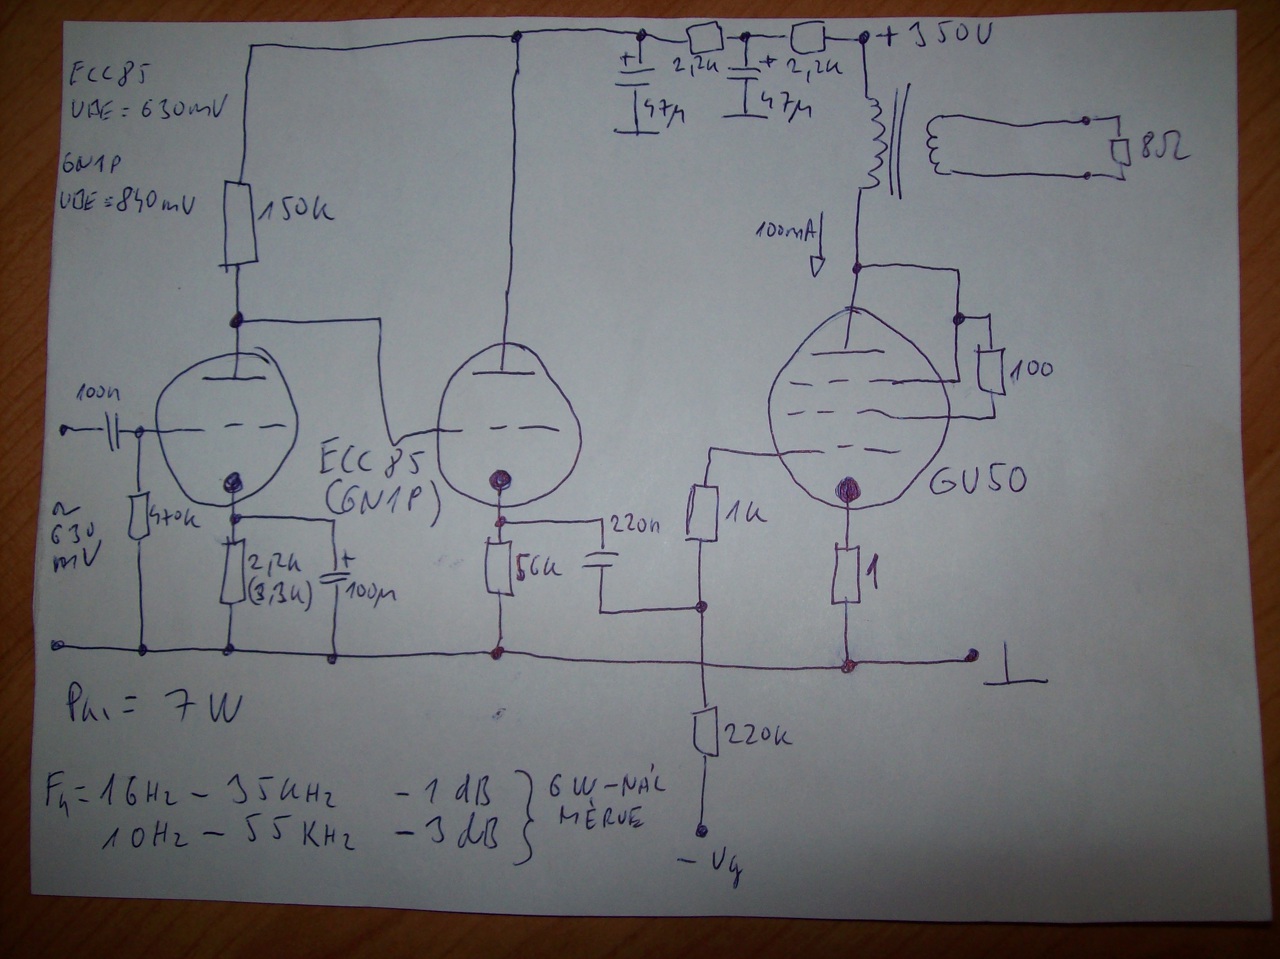 ECC85
UBE = 630mV
6N1P
UBE = 840mV
+ 350V
2,2k
+
2,2k
+
47µ
47µ
8Ω
150k
100mA
100n
100
ECC85
(6N1P)
GU50
~
630
mV
470k
2,2k
(3,3k)
+
100µ
220n
56k
1k
1
Pki = 7W
220k
16Hz - 35kHz - 1dB
10Hz - 55KHz - 3dB
6W-NÁL
MÉRVE
- Ug